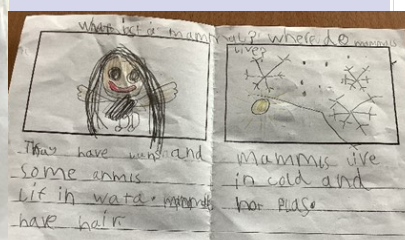 What is a mammal? where do mammals
live?
They have lungs and
some anmls
lif in wata. mammals
have hair.
mammls live
in cold and
hot plas.